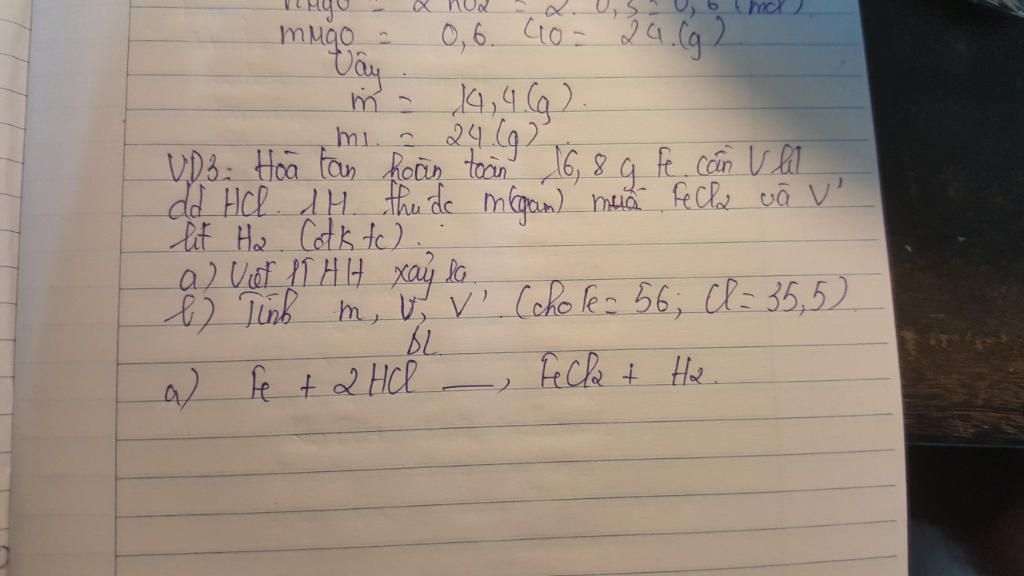 nMgO = 2 nO2 = 2. 0,3 = 0,6 (mol)
mMgO = 0,6. 40 = 24.(g)
Vậy.
m = 14,4(g).
m1. = 24.(g)
VD3: Hoà tan hoàn toàn 16,8 g Fe. cần V lít
dd HCl. 1M. thu đc m(gam) muối FeCl2 và V'
lít H2. (đktc).
a) Viết PTHH xảy ra.
b) Tính m, V, V' (cho Fe = 56; Cl = 35,5)
bL
a) Fe + 2HCl → FeCl2 + H2.